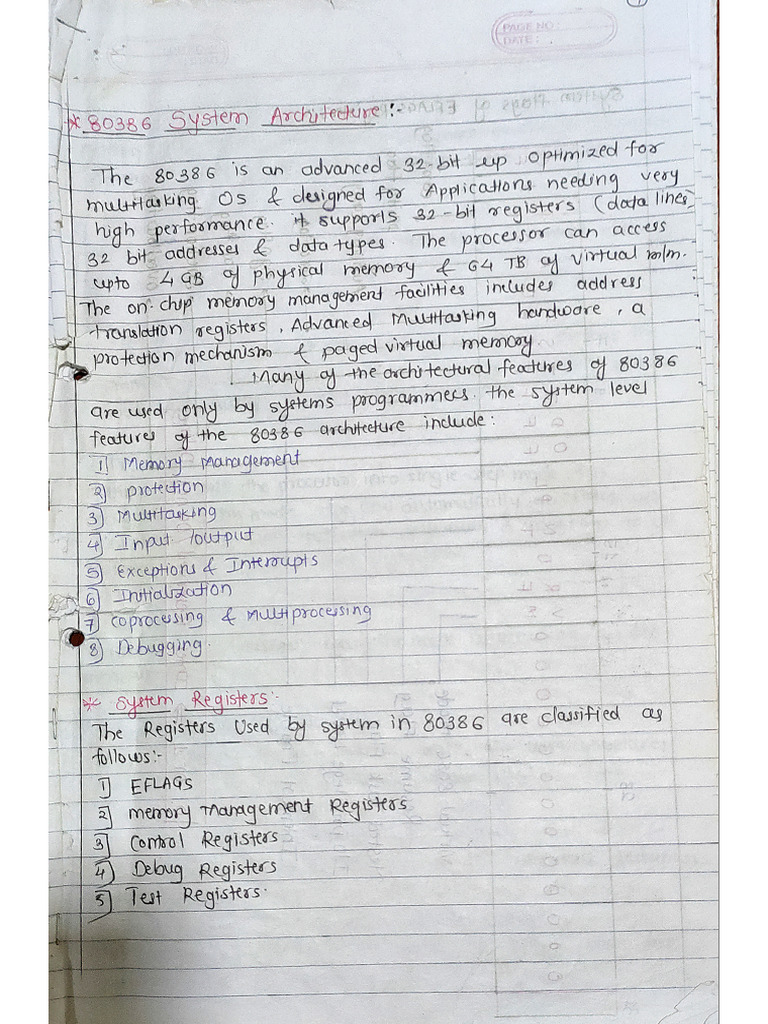 PAGE NO:
DATE:
* 80386 System Architecture :-
The 80386 is an advanced 32-bit up optimized for
multitasking OS & designed for Applications needing very
high performance. it supports 32-bit registers (data lines)
32 bit addresses & data types. The processor can access
upto 4GB of physical memory & 64 TB of virtual m/m.
The on-chip memory management facilities includes address
translation registers, Advanced Multitasking hardware, a
protection mechanism & paged virtual memory
Many of the architectural features of 80386
are used only by systems programmers. the system level
features of the 80386 architecture include:
1) Memory Management
2) protection
3) Multitasking
4) Input /output
5) Exceptions & Interrupts
6) Initialization
7) coprocessing & Multiprocessing
8) Debugging.
* System Registers:-
The Registers Used by system in 80386 are classified as
follows:-
1) EFLAGS
2) memory Management Registers
3) Control Registers
4) Debug Registers
5) Test Registers.